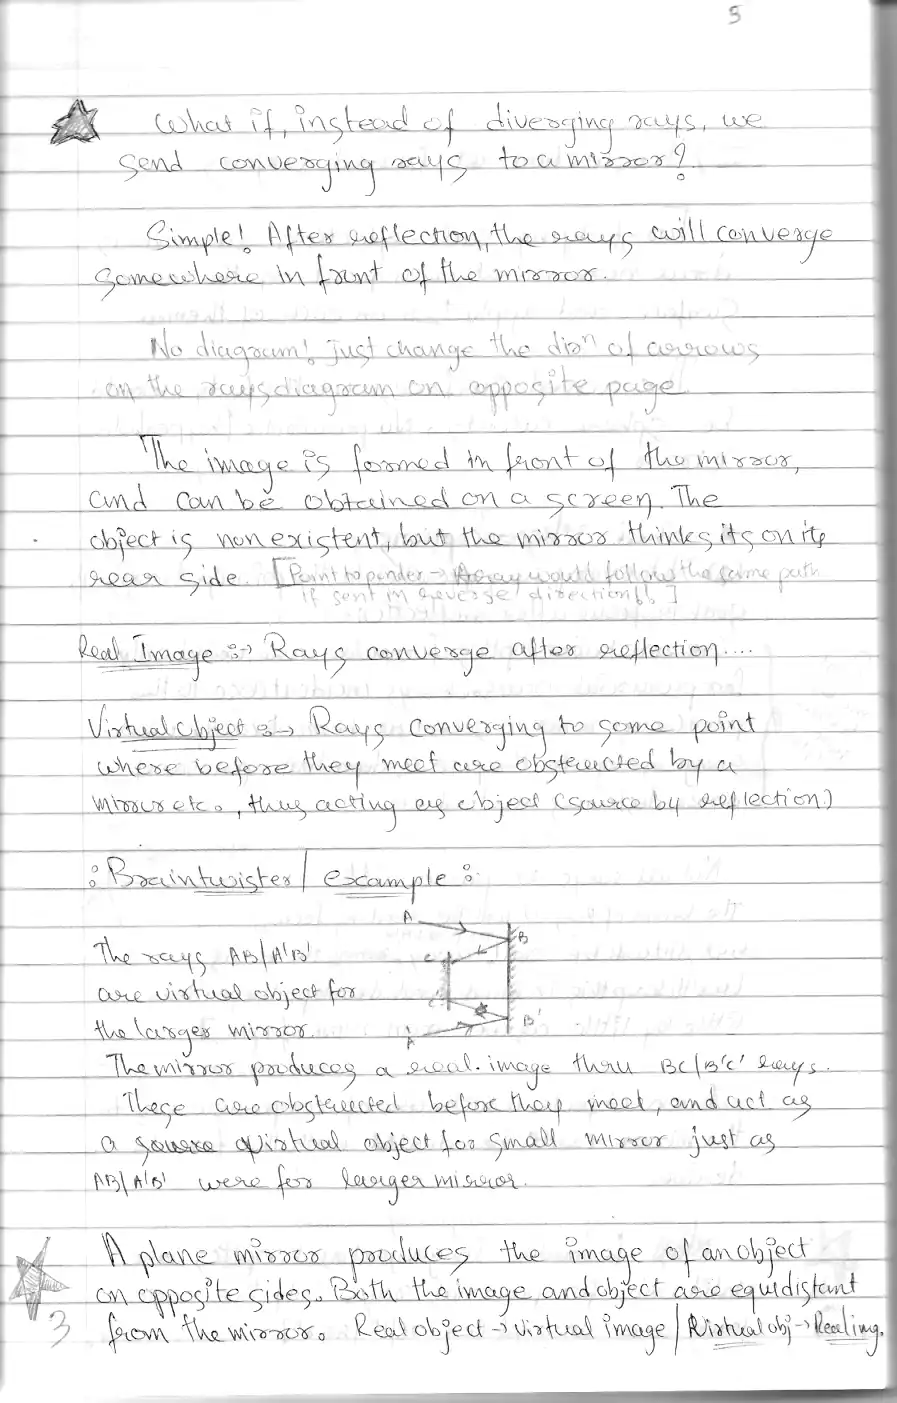 5
What if, instead of diverging rays, we
send converging rays to a mirror?
Simple! After reflection, the rays will converge
somewhere in front of the mirror.
No diagram! Just change the dirn of arrows
on the rays diagram on opposite page
The image is formed in front of the mirror,
and can be obtained on a screen. The
object is nonexistent, but the mirror thinks its on its
rear side. [Point to ponder → A ray would follow the same path
if sent in reverse direction!! ]
Real Image :→ Rays converge after reflection....
Virtual object :→ Rays converging to some point
where before they meet are obstructed by a
mirror etc., thus acting as object (source by reflection)
: Braintwister / example :
A
B
The rays AB/A'B'
C
are virtual object for
B'
the larger mirror.
A'
The mirror produces a real image thru BC/B'C' rays.
These are obstructed before they meet, and act as
a virtual object for small mirror just as
AB/A'B' were for larger mirror.
A plane mirror produces the image of an object
on opposite sides. Both the image and object are equidistant
3 from the mirror. Real object → virtual image / Virtual obj → Real img.